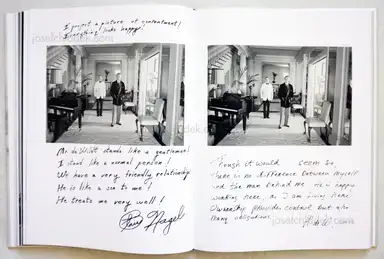 I project a picture of contentment!
Everything looks happy!
Mr. deWildt stands like a gentleman!
I stand like a normal person!
We have a very friendly relationship
He is like a son to me!
He treats me very well!
Paul Nagel
Though it would seem so
there is no difference between myself
and the man behind me. He is happy
working here, as I am living here.
Ownership provides control but also
many obligations.
josefchladek.com